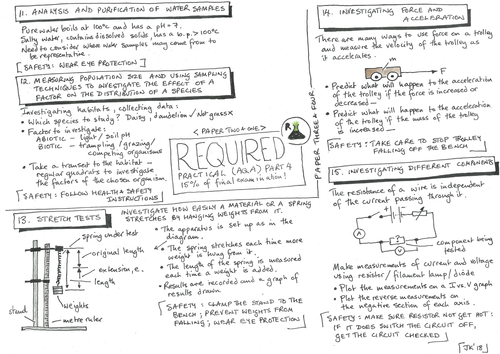 11. ANALYSIS AND PURIFICATION OF WATER SAMPLES
Pure water boils at 100°C and has a pH = 7.
Salty water, contains dissolved solids, has a b.p. > 100°C
Need to consider where water samples may come from to
be representative.
SAFETY: WEAR EYE PROTECTION
12. MEASURING POPULATION SIZE AND USING SAMPLING
TECHNIQUES TO INVESTIGATE THE EFFECT OF A
FACTOR ON THE DISTRIBUTION OF A SPECIES
Investigating habitats, collecting data:
• Which species to study? Daisy/dandelion/Not grass x
• Factor to investigate:
ABIOTIC - light/soil pH
BIOTIC - trampling/grazing/
competing organisms
• Take a transect to the habitat -
regular quadrats to investigate
the factors of the chosen organism.
SAFETY: FOLLOW HEALTH & SAFETY
INSTRUCTIONS
< PAPER TWO & ONE >
REQUIRED
PRACTICAL (AQA) PART 4
15% of final examination!
R
PAPER THREE & FOUR
13. STRETCH TESTS
INVESTIGATE HOW EASILY A MATERIAL OR A SPRING
STRETCHES BY HANGING WEIGHTS FROM IT.
spring under test
original length
extension, e.
length
weights
metre ruler
stand
• The apparatus is set up as in the
diagram.
• The spring stretches each time more
weight is hung from it.
• The length of the spring is measured
each time a weight is added.
• Results are recorded and a graph of
results drawn.
SAFETY: CLAMP THE STAND TO THE
BENCH; PREVENT WEIGHTS FROM
FALLING; WEAR EYE PROTECTION
14. INVESTIGATING FORCE AND
ACCELERATION
There are many ways to use force on a trolley
and measure the velocity of the trolley as
it accelerates.
m
F
• Predict what will happen to the acceleration
of the trolley if the force is increased or
decreased -
• Predict what will happen to the acceleration
of the trolley if the mass of the trolley
is increased -
SAFETY: TAKE CARE TO STOP TROLLEY
FALLING OFF THE BENCH
15. INVESTIGATING DIFFERENT COMPONENTS
The resistance of a wire is independent
of the current passing through it.
A
?
V
component being
tested
Make measurements of current and voltage
using resistor/filament lamp/diode
• Plot the measurements on a I vs. V graph
• Plot the reverse measurements on
the negative section of each axis.
SAFETY: MAKE SURE RESISTOR NOT GET HOT:
IF IT DOES SWITCH THE CIRCUIT OFF,
GET THE CIRCUIT CHECKED
JK '18